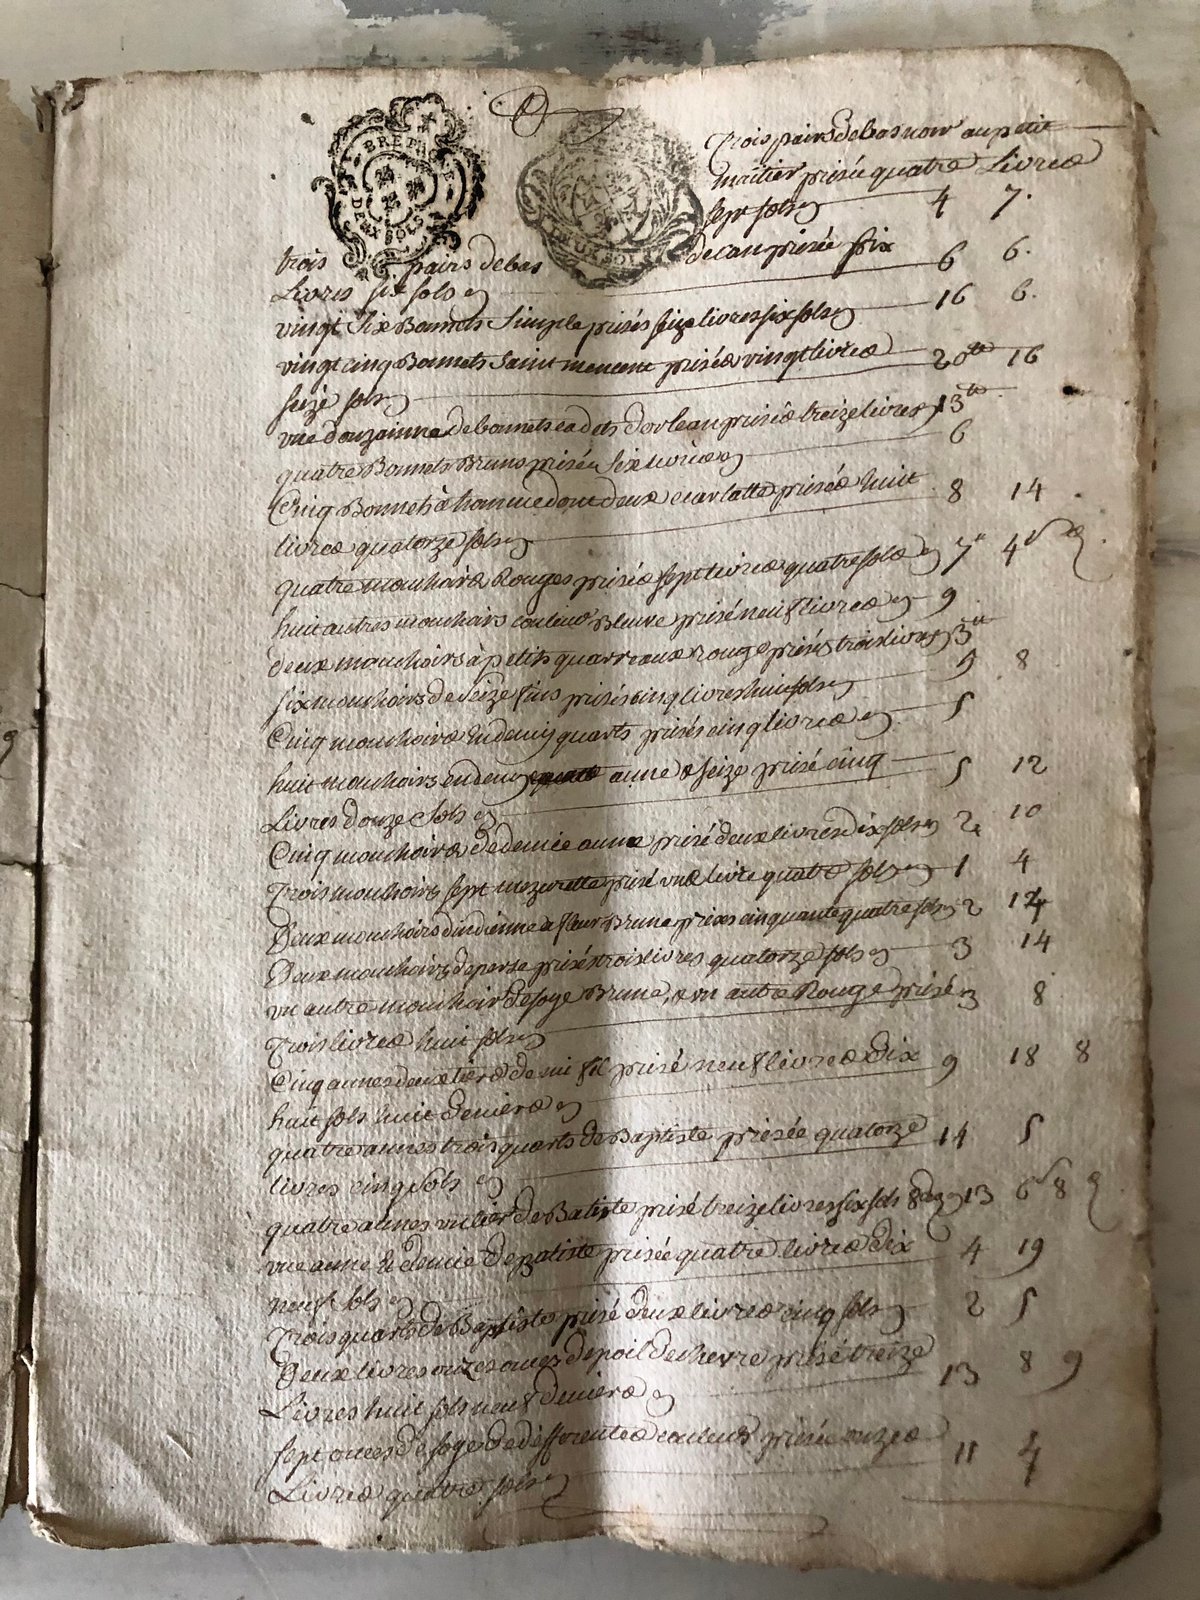 BRET
DEUX SOLS
DEUX SOLS
Trois pairs de bas noir au petit
métier prisée quatre Livres
sept sols 4 7.
trois pairs de bas de can prisée six
Livres six sols 6 6.
vingt six Bonnets Simple prisés seize livres six sols 16 6.
vingt cinq Bonnets Saint mencent prisée vingt livres
seize sols 20tt 16
une douzainne de bonnets cadets dorlean prisée treize livres 13tt
quatre Bonnets Bruns prisée six livres 6
Cinq Bonnets à homme dont deux ecarlatte prisée huit
livres quatorze sols 8 14
quatre mouchoirs Rouges prisés sept livres quatre sols 7tt 4s
huit autres mouchoirs couleur Bleuve prisé neuf livres 9
deux mouchoirs à petits quarreaux rouge prisés trois livres 3tt
six mouchoirs de seize prisés cinq livres huit sols 5 8
Cinq mouchoirs en demy quarts prisés cinq livres 5
huit mouchoirs en demy aune & seize prisé cinq
Livres douze sols 5 12
Cinq mouchoirs de demie aune prisé deux livres dix sols 2 10
Trois mouchoirs sept mezurette prisé une livre quatre sols 1 4
Deux mouchoirs dindienne à fleur Brune prisés cinquante quatre sols 2 14
Deux mouchoirs de perse prisés trois livres quatorze sols 3 14
un autre mouchoir de soye Brune, & un autre Rouge prisé
Trois livres huit sols 3 8
Cinq aunes deux tiers de mi fil prisé neuf livres dix
huit sols huit deniers 9 18 8
quatre aunes trois quarts de Baptiste prisée quatorze
livres cinq sols 14 5
quatre aunes un tier de Batiste prisé treize livres six sols 8 d 13 6s 8 d
une aune & demie de patiste prisée quatre livres dix
neuf sols 4 19
Trois quarts de Baptiste prisé deux livres cinq sols 2 5
Deux livres onze onces de poil de chevre prisé treize
Livres huit sols neuf deniers 13 8 9
sept onces de soye de differentes couleurs prisée onze
Livres quatre sols 11 4